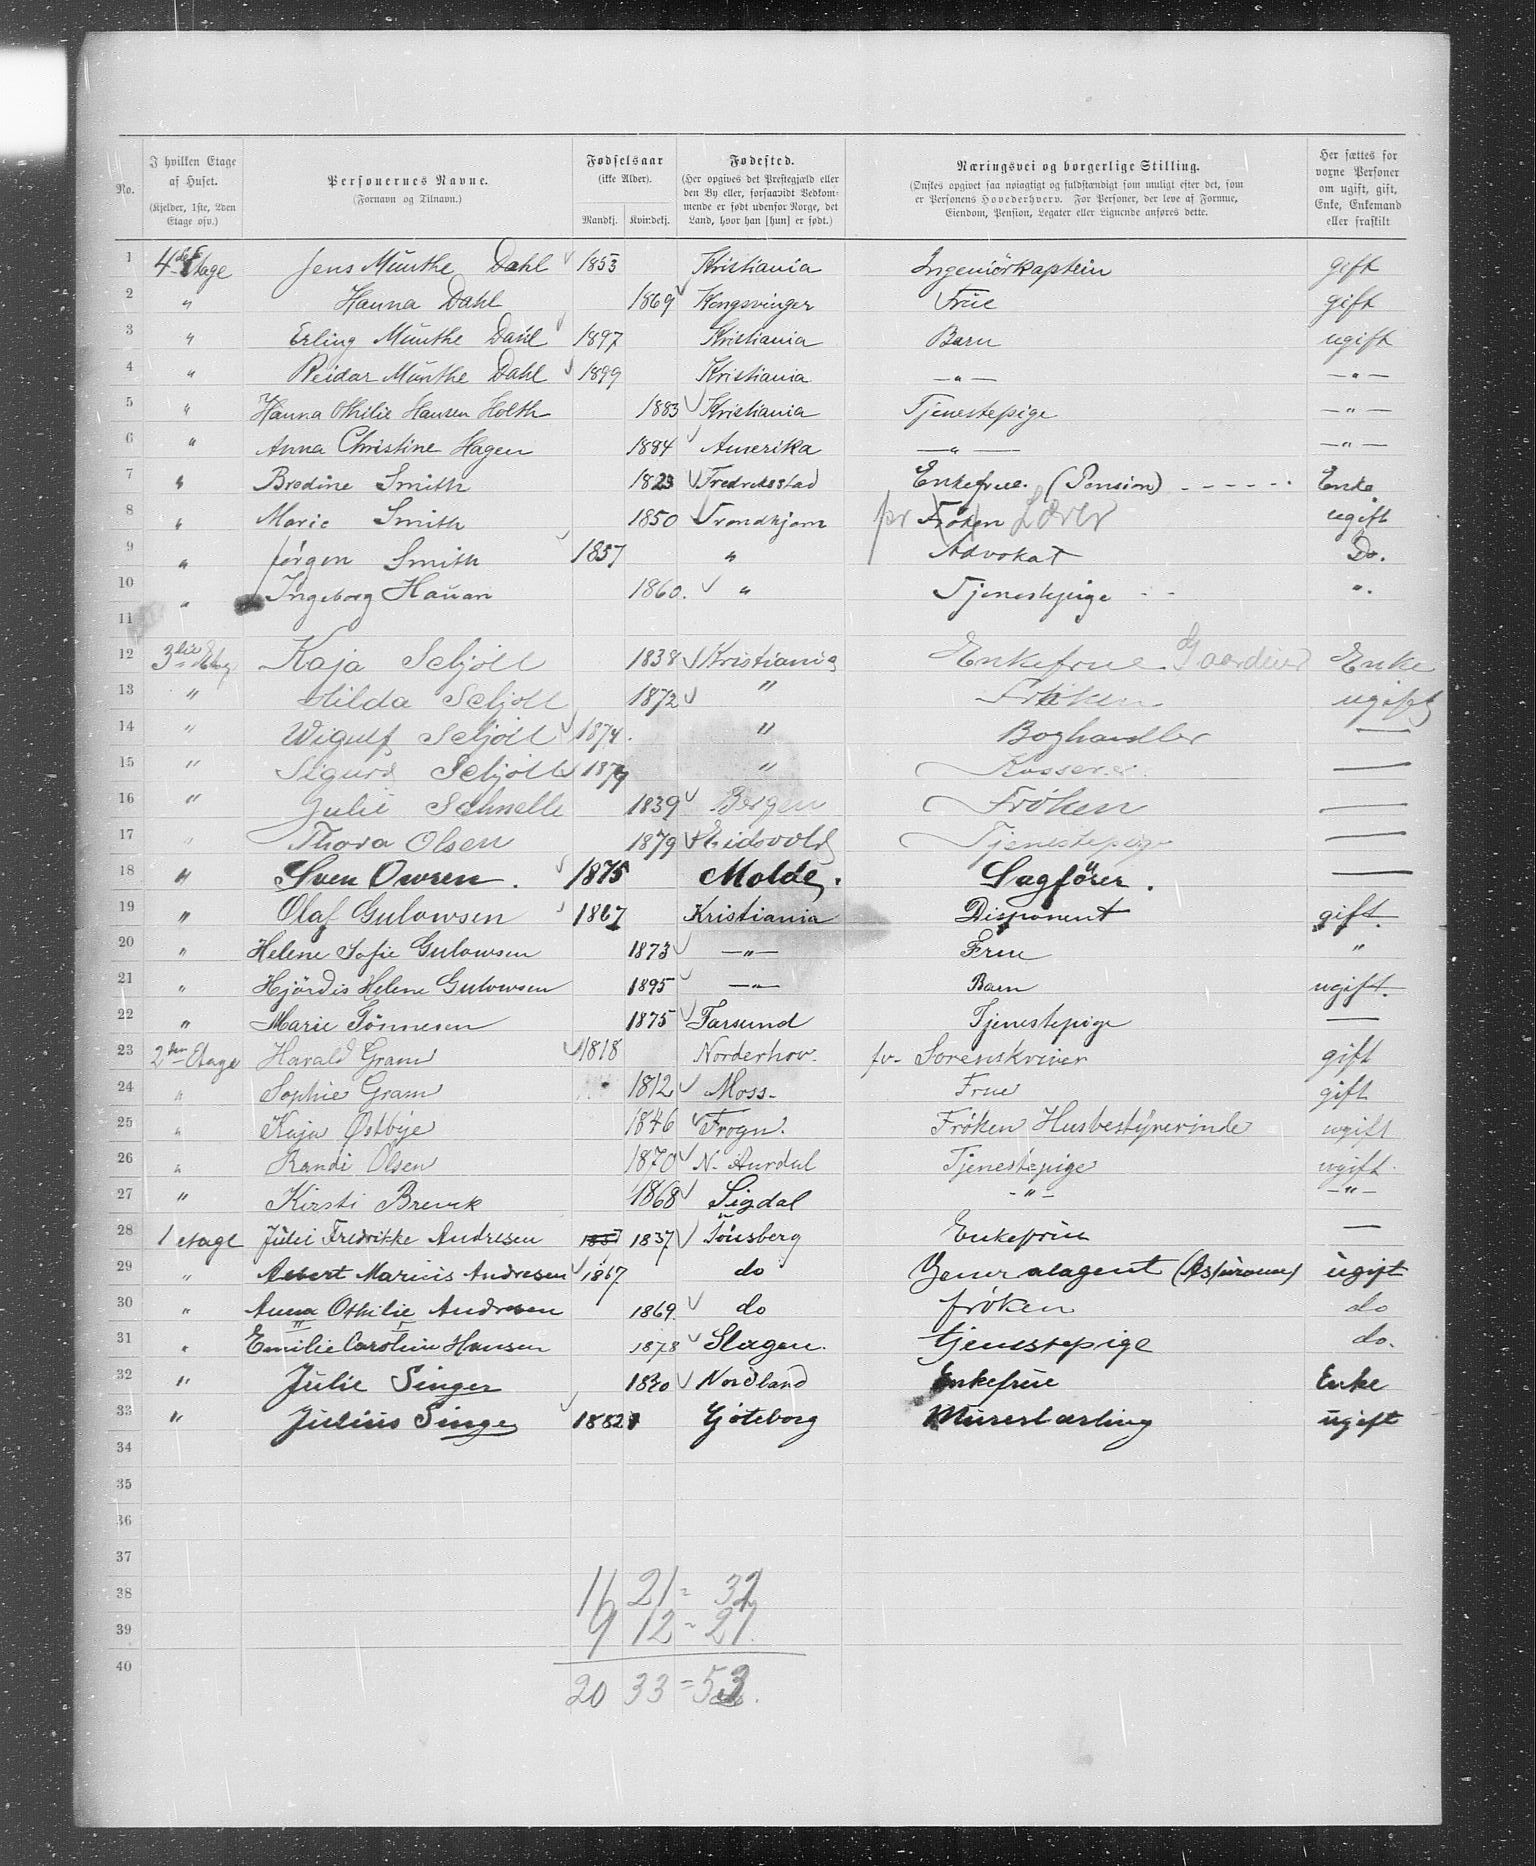 No. I hvilken Etage af Huset. (Kjelder, 1ste, 2den Etage osv.) Personernes Navne. (Fornavn og Tilnavn.) Fødselsaar (ikke Alder). Mandkj. Kvindekj. Fødested. (Her opgives det Prestegjæld eller den By eller, forsaavidt Vedkommende er født udenfor Norge, det Land, hvor han [hun] er født.) Næringsvei og borgerlige Stilling. (Ønskes opgivet saa nøiagtigt og fuldstændigt som muligt efter det, som er Personens Hovederhverv. For Personer, der leve af Formue, Eiendom, Pension, Legater eller Lignende anføres dette. Her sættes for voxne Personer om ugift, gift, Enke, Enkemand eller fraskilt
1 4de Etage Jens Münthe Dahl 1853 Kristiania Ingeniörkaptein gift
2 " Hanna Dahl 1869 Kongsvinger Früe gift
3 " Erling Münthe Dahl 1897 Kristiania Barn ugift
4 " Reidar Münthe Dahl 1899 Kristiania —"— —"—
5 " Hanna Othilie Hansen Holth 1883 Kristiania Tjenestepige —"—
6 " Anna Christine Hagen 1884 Amerika —"— —"—
7 " Bredine Smith 1823 Fredrikstad Enkefrue. (Pension) - - - - - - Enke
8 " Marie Smith 1850 Trondhjem pr Frøken Lærer ugift
9 " Jørgen Smith 1857 " Advokat Do.
10 " Ingeborg Hauan 1860. " Tjenestepige ".
11
12 3die Etag Kaja Schjøll 1838 Kristiania Enkefrue Gaardeier Enke
13 " Hilda Schjøll 1872 " Frøken ugift
14 " Wigulf Schjøll 1874. " Boghandler —
15 " Sigurd Schjøll 1879 " Kasserer. —
16 " Julie Schnelle 1839 Bergen Frøken —
17 " Thora Olsen 1879 Eidsvold Tjenestepige —
18 " Sven Owren. 1875 Molde. Sagfører. —
19 " Olaf Gulowsen 1867 Kristiania Disponent gift.
20 " Helene Sofie Gulowsen 1873 —"— Frue "
21 " Hjördis Helene Gulowsen 1895 —"— Barn ugift.
22 " Marie Tönnesen 1875 Farsund Tjenestepige —
23 2den Etage Harald Gram 1818 Norderhov. fv- Sorenskriver gift
24 " Sophie Gram 1812 Moss- Frue gift
25 " Kaja Østbye 1846 Frogn. Frøken Husbestyrerinde ugift
26 " Randi Olsen 1870 N. Aurdal Tjenestepige ugift.
27 " Kirsti Brevik 1868 Sigdal -"- -"-
28 1 etage Julie Fredrikke Andresen 1837 1837 Tönsberg Enkefrüe —
29 " Albert Marius Andresen 1867 do Generalagent (Assurance) ügift
30 " Anna Othilie Andresen 1869. do frøken do
31 " Emilie Caroline Hansen 1878 Slagen. tjenestepige do.
32 " Julie Singer 1820 Nordland Enkefrue Enke
33 " Julius Singer 1882 Gjöteborg Murerlærling ugift
34
35
36
37
38 11 21 = 32
39 9 12 = 21.
40 20 33 = 53.